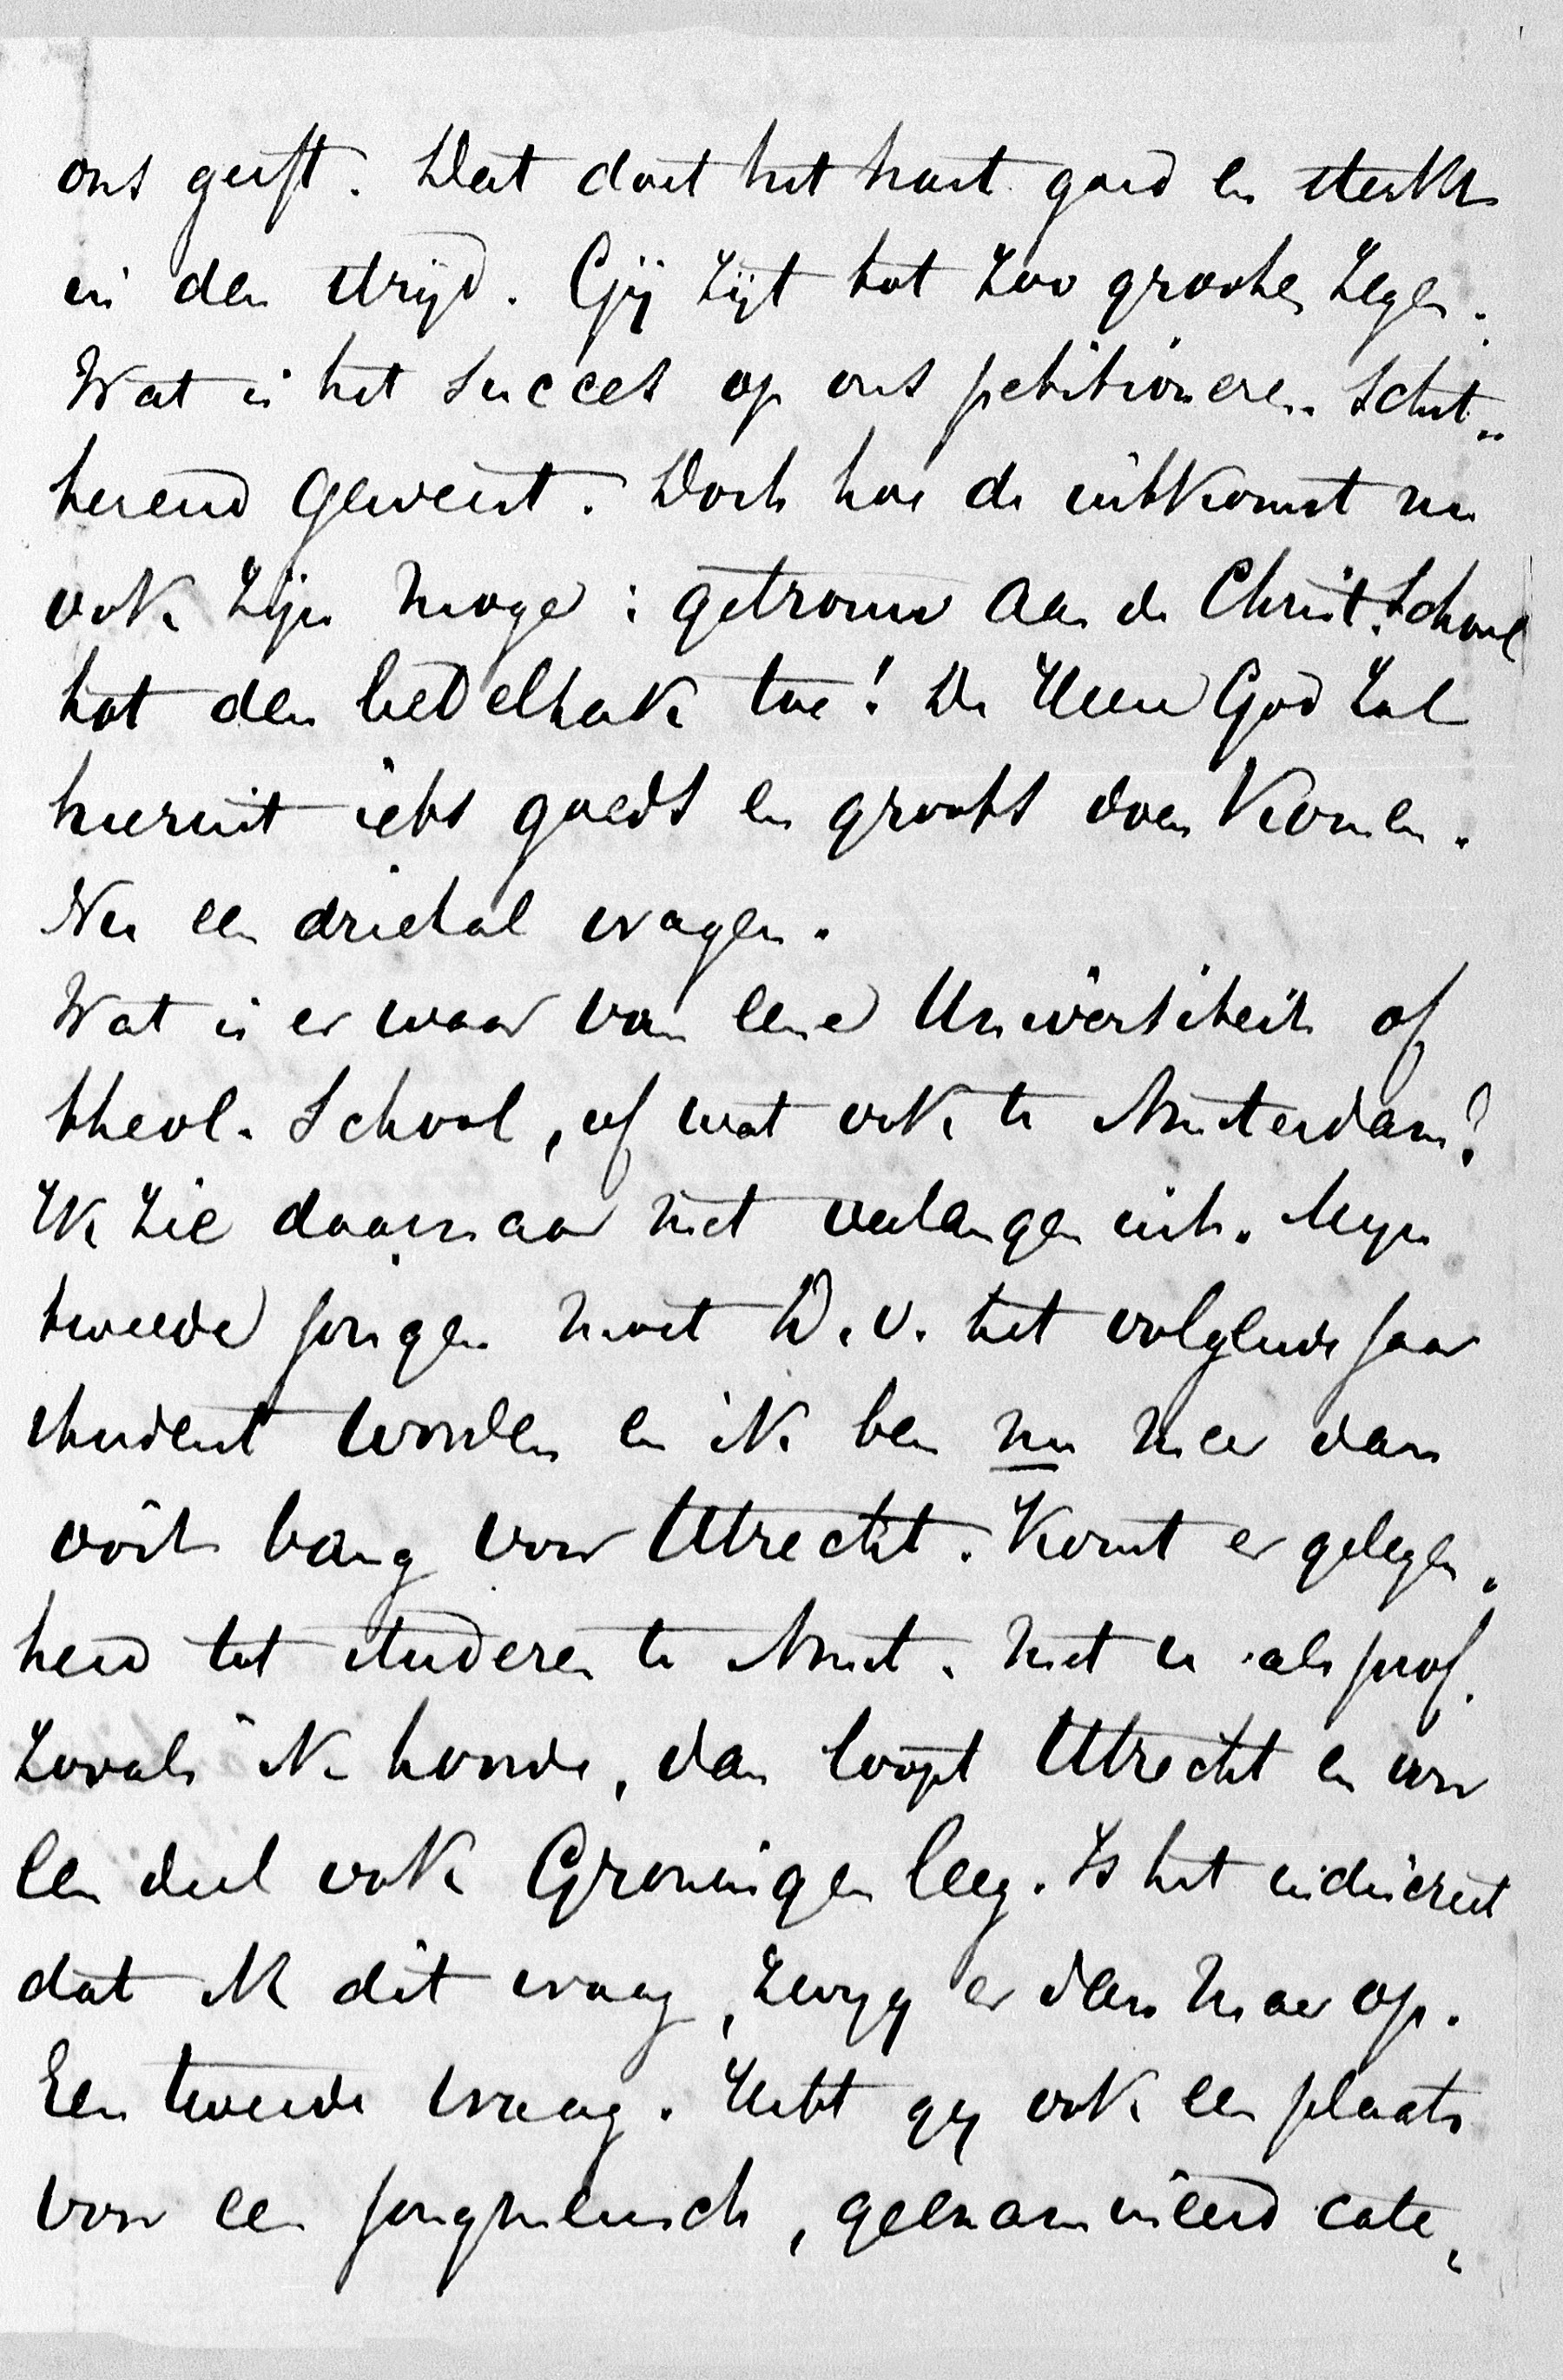 ons geeft. Dat doet het hart goed en sterkt
in den strijd. Gij zijt tot zoo grooten zegen.
Wat is het succes op ons petitioneren schit„
terend geweest. Doch hoe de uitkomst nu
ook zijn moge: getrouw aan de Christ. School
tot den bedelzak toe! De Heere God zal
hieruit iets goeds en groots doen komen.
Nu een drietal vragen.
Wat is er waar van eene Universiteit of
theol. School, of wat ook te Amsterdam?
Ik zie daarnaar met verlangen uit. Mijn
tweede jongen moet D.V. het volgende jaar
student worden en ik ben nu meer dan
ooit bang voor Utrecht. Komt er gelegen„
heid tot studeren te Amst. met u als prof.
zooals ik hoorde, dan loopt Utrecht en voor
een deel ook Groningen leeg. Is het indiscreet
dat ik dit vraag, zwijg er dan maar op.
Een tweede vraag. Hebt gij ook een plaats
voor een jongmensch, geëxamineerd cate„